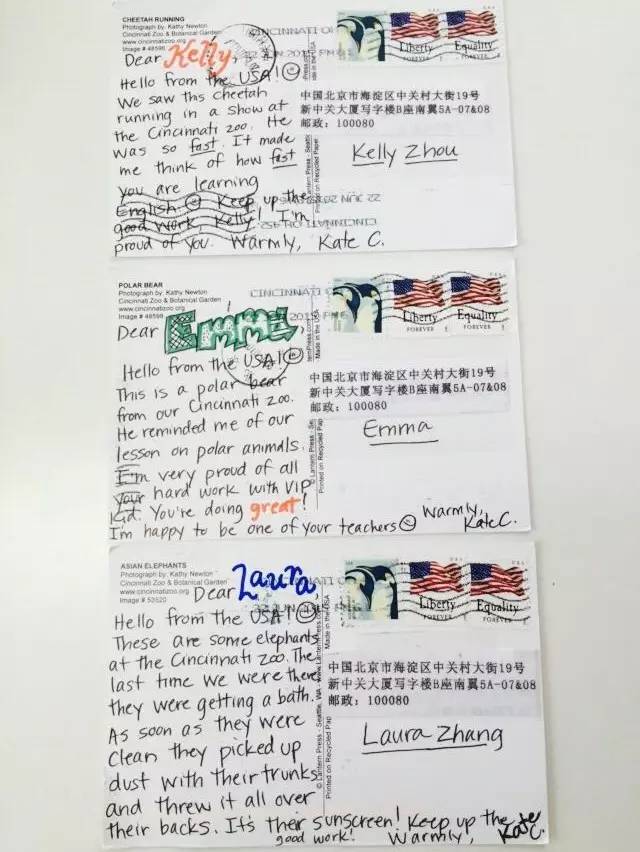 CHEETAH RUNNING
Photograph by: Kathy Newton
Cincinnati Zoo & Botanical Garden
www.cincinnatizoo.org
Image # 48596
Dear Kelly,
Hello from the USA!
We saw this cheetah
running in a show at
the Cincinnati zoo. He
was so fast. It made
me think of how fast
you are learning
English. Keep up the
good work, Kelly! I'm
proud of you. Warmly, Kate C.
Liberty Equality
FOREVER FOREVER
中国北京市海淀区中关村大街19号
新中关大厦写字楼B座南翼5A-07&08
邮政：100080
Kelly Zhou
Printed on Recycled Paper
POLAR BEAR
Photograph by: Kathy Newton
Cincinnati Zoo & Botanical Garden
www.cincinnatizoo.org
Image # 48598
Dear Emma,
Hello from the USA!
This is a polar bear
from our Cincinnati zoo.
He reminded me of our
lesson on polar animals.
I'm very proud of all
your hard work with VIP
Kid. You're doing great!
I'm happy to be one of your teachers
Warmly,
Kate C.
CINCINNATI O
Liberty Equality
FOREVER FOREVER
中国北京市海淀区中关村大街19号
新中关大厦写字楼B座南翼5A-07&08
邮政：100080
Emma
Made in the USA
Printed on Recycled Pap
ASIAN ELEPHANTS
Photograph by: Kathy Newton
Cincinnati Zoo & Botanical Garden
www.cincinnatizoo.org
Image # 52520
Dear Laura,
Hello from the USA!
These are some elephants
at the Cincinnati zoo. The
last time we were there
they were getting a bath.
As soon as they were
clean they picked up
dust with their trunks
and threw it all over
their backs. It's their sunscreen! Keep up the
good work! Warmly, Kate
C.
Liberty Equality
FOREVER FOREVER
中国北京市海淀区中关村大街19号
新中关大厦写字楼B座南翼5A-07&08
邮政：100080
Laura Zhang
© Lantern Press - Seattle, WA - www.LanternPress.com
Made in the USA
Printed on Recycled Pap